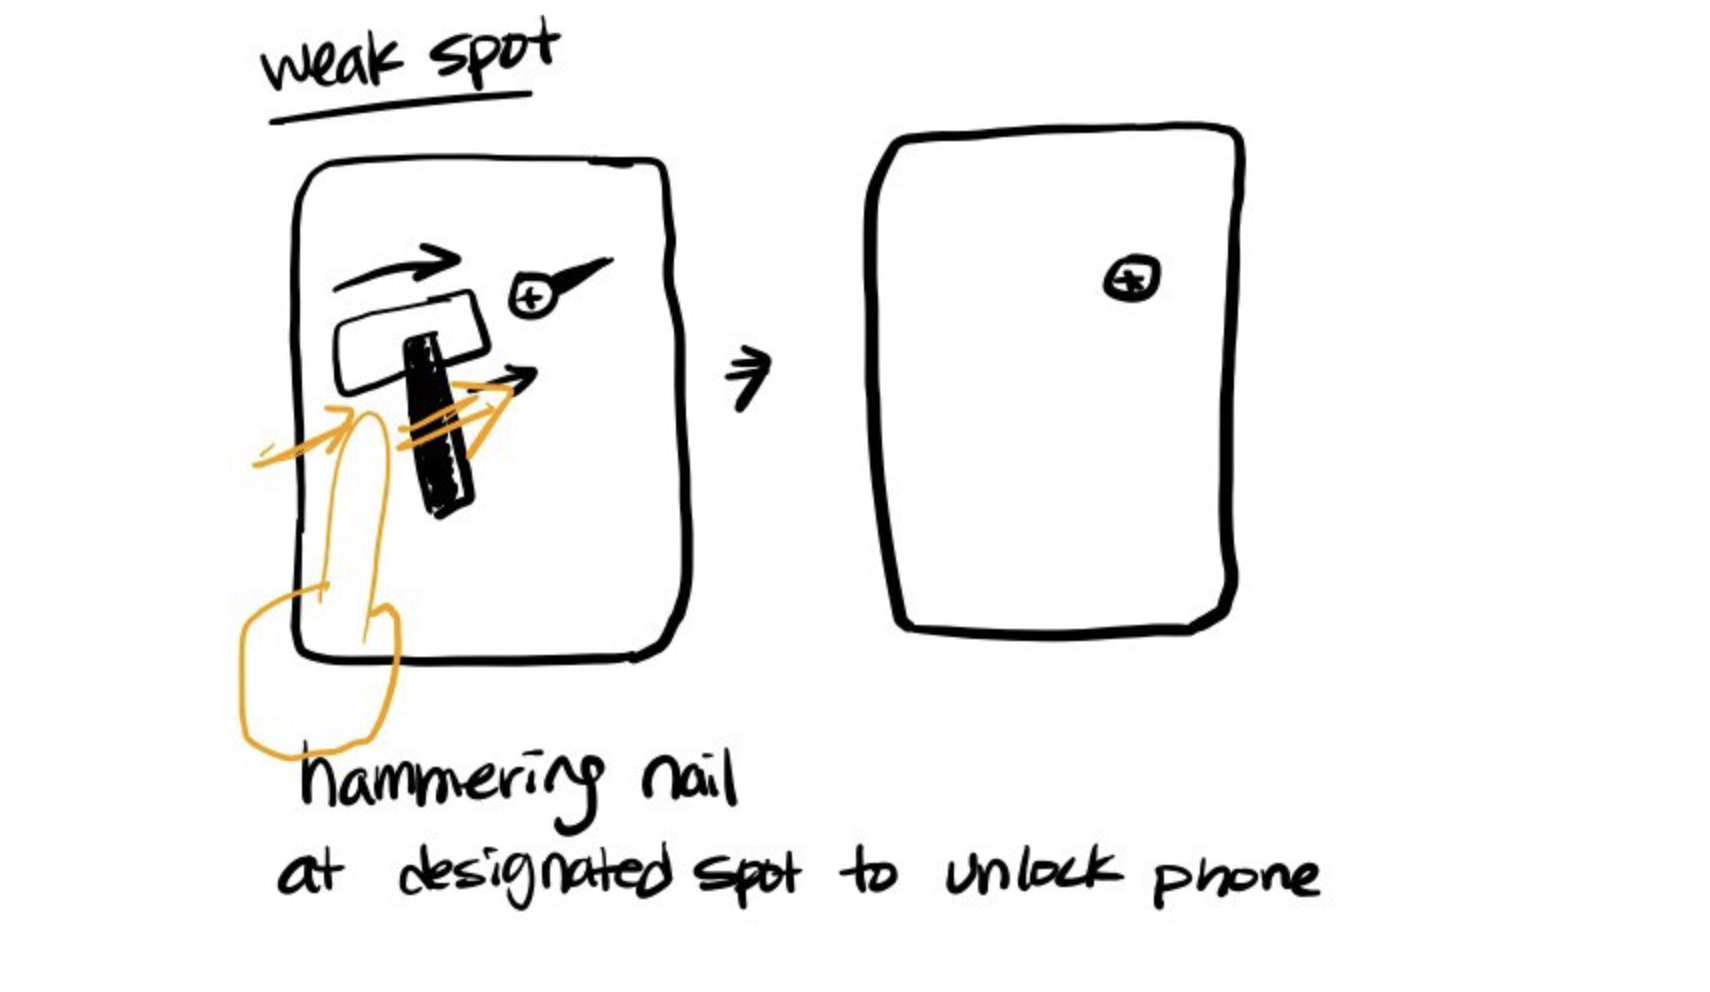 weak spot
hammering nail
at designated spot to unlock phone